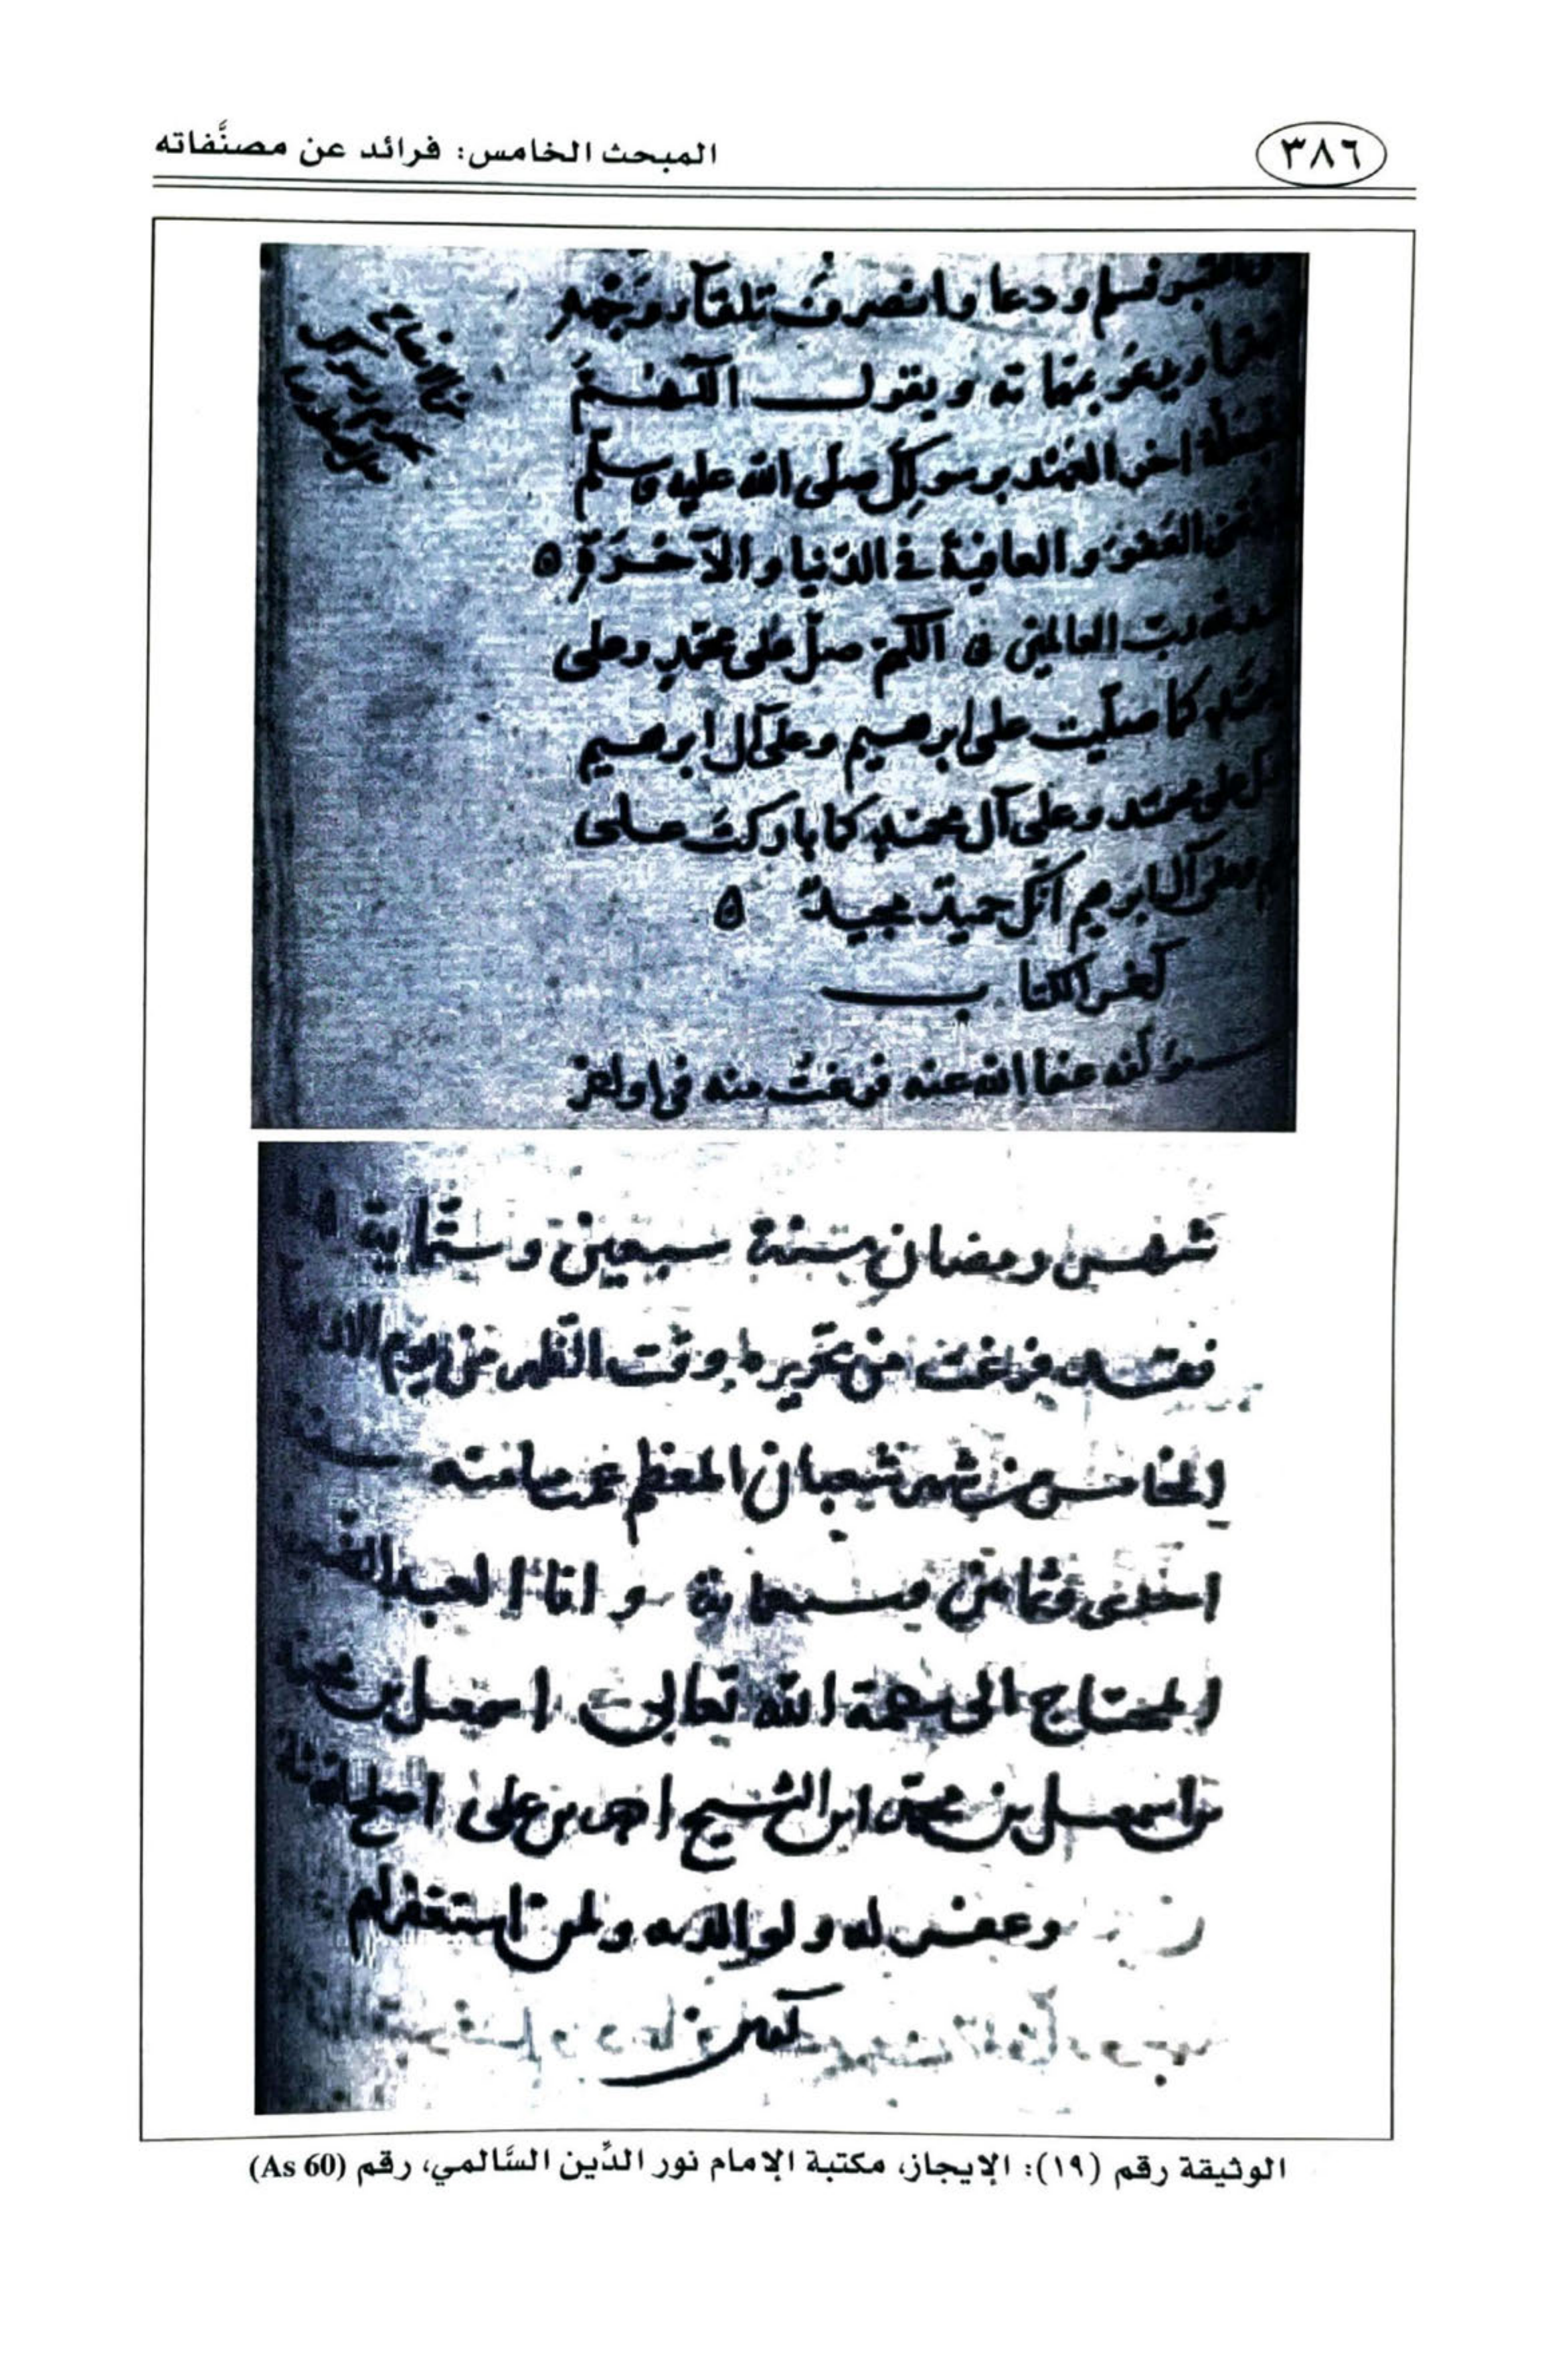 ٣٨٦
المبحث الخامس: فرائد عن مصنَّفاته
فسلم ودعا وانصرف تلقاء وجهه
ويقول اللهم
اخر العهد برسولك صلى الله عليه وسلم
العفو والعافية في الدنيا والآخرة ه
رب العالمين ه اللهم صل على محمد وعلى
كما صليت على ابرهيم وعلى آل ابرهيم
على محمد وعلى آل محمد كما باركت على
وعلى آل ابرهيم انك حميد مجيد ه
آخر الكتاب
مؤلفه عفا الله عنه فرغت منه في اول عشر
شهر رمضان سنة سبعين وستماية
فرغت من تحريره وقت الظهر من يوم
الخامس من شهر شعبان المعظم عمت ميامنه
احدى وثمانين وسبعماية وانا العبد
المحتاج الى رحمة الله تعالى اسمعيل بن
بن اسمعيل بن محمد ابن الشيخ احمد بن على اصلح الله
وغفر له ولوالديه ولمن استغفر لهم
الوثيقة رقم (١٩): الإيجاز، مكتبة الإمام نور الدِّين السَّالمي، رقم (As 60)